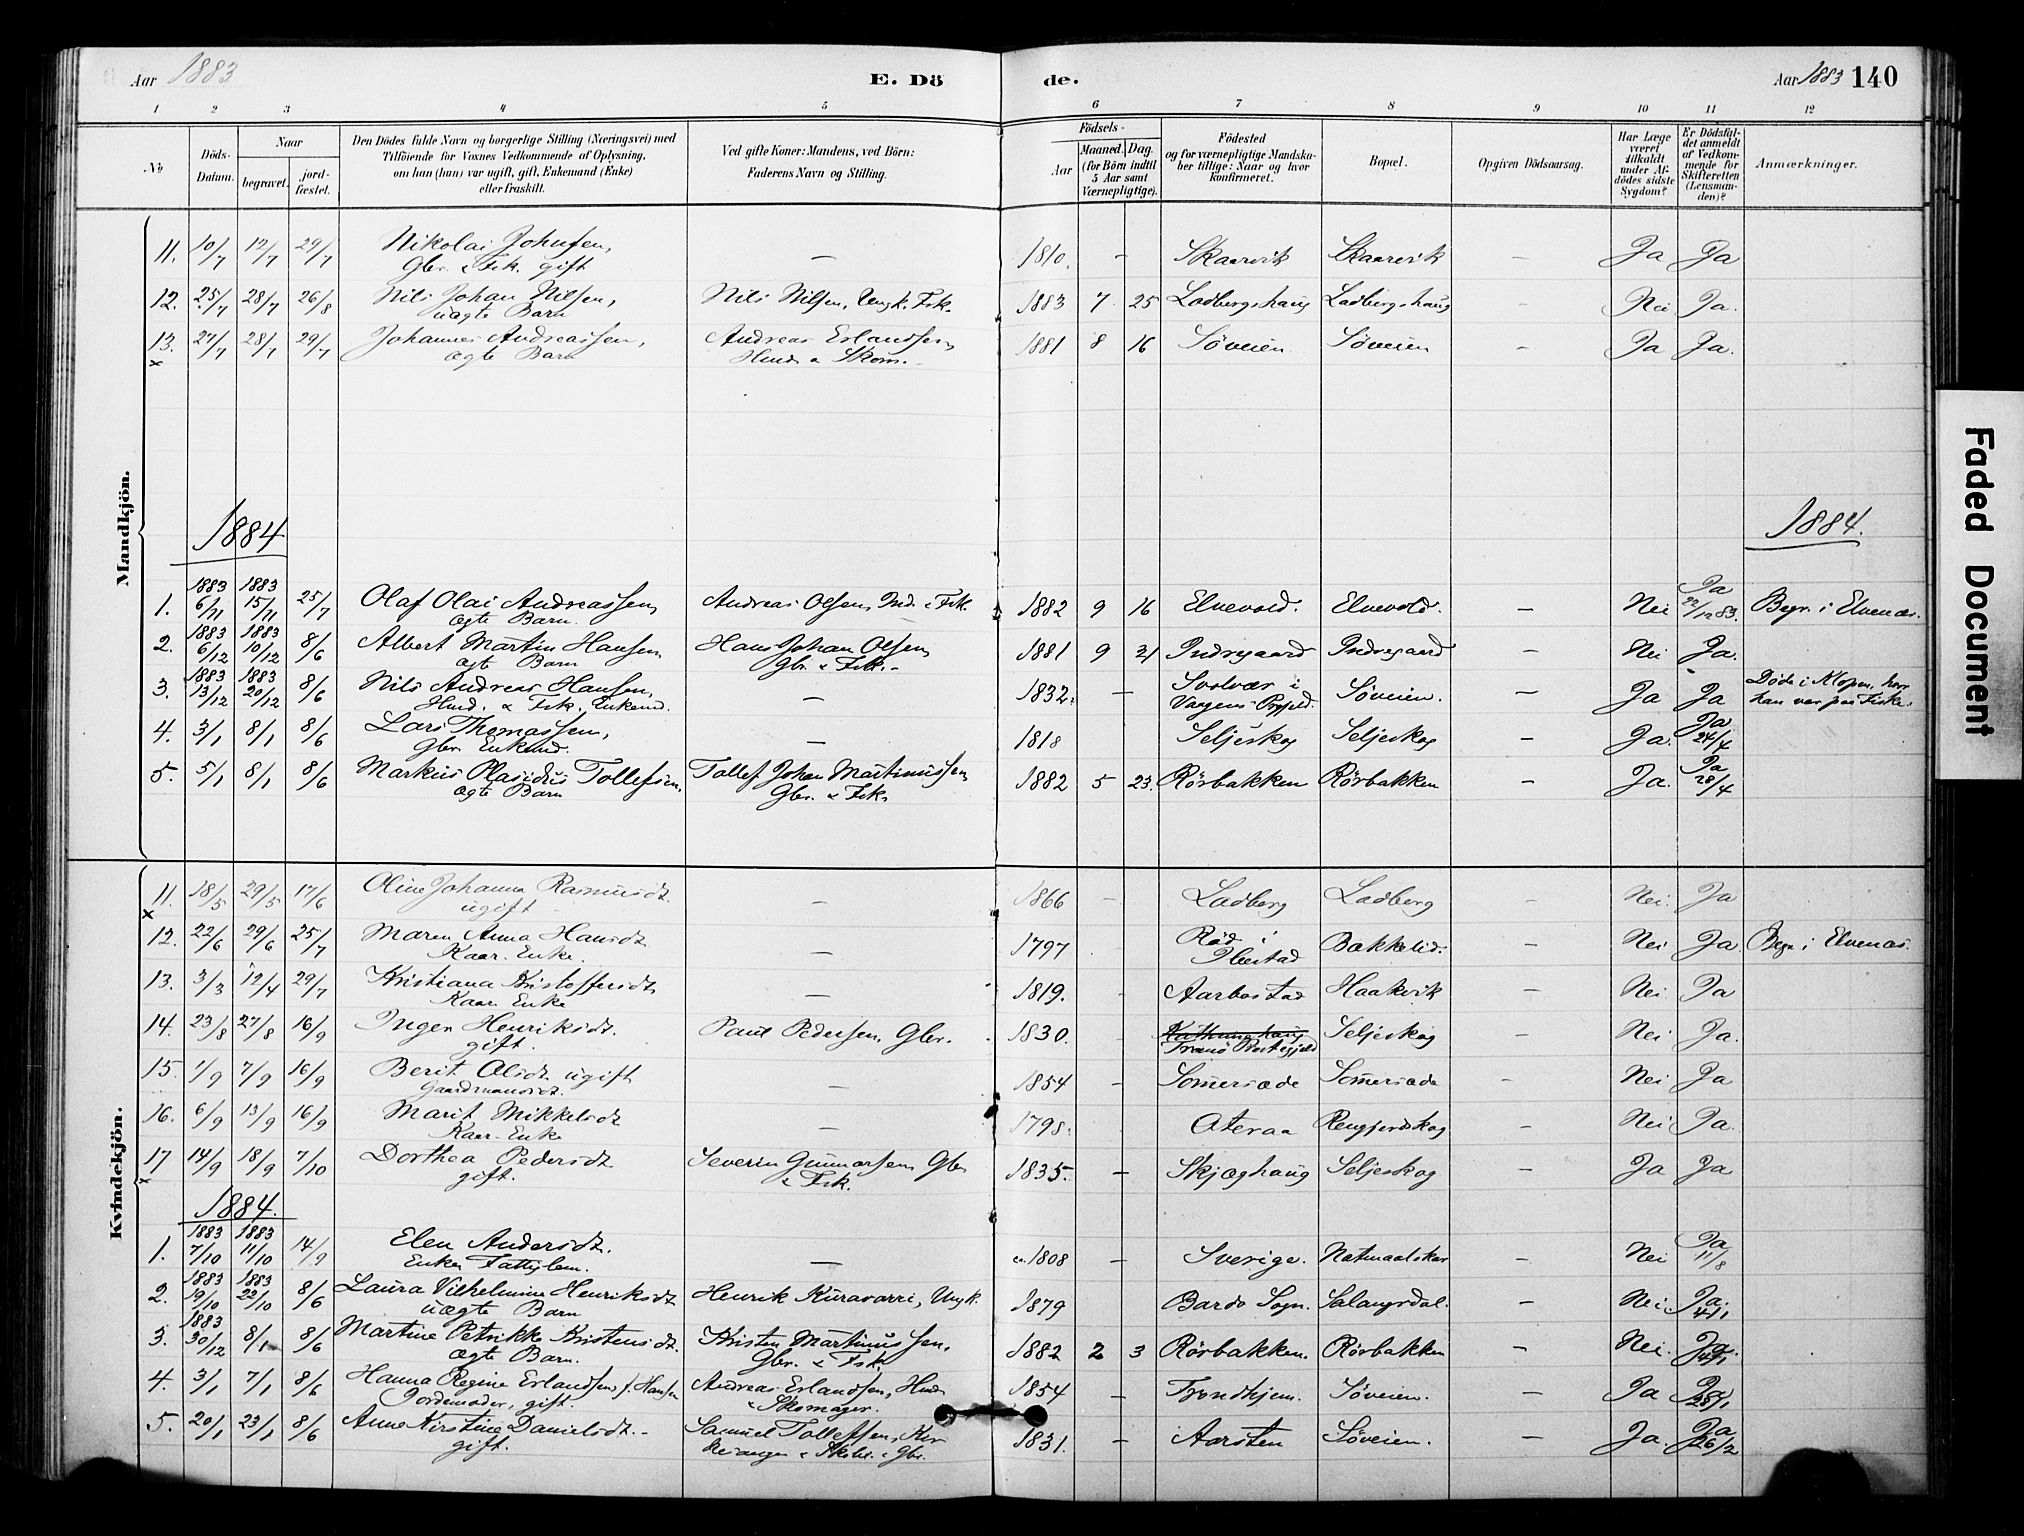 Aar 1883
E. Dö
de.
Aar 1883 140
1 2 3 4 5 6 7 8 9 10 11 12
No
Döds-Datum.
Naar
begravet.
jord-fæstet.
Den Dödes fulde Navn og borgerlige Stilling (Næringsvei) med
Tilföiende for Voxnes Vedkommende af Oplysning,
om han (hun) var ugift, gift, Enkemand (Enke)
eller fraskilt.
Ved gifte Koner: Mandens, ved Börn:
Faderens Navn og Stilling.
Födsels-
Aar
Maaned. Dag.
(for Börn indtil
5 Aar samt
Værnepligtige).
Födested
og for værnepligtige Mandska-
ber tillige: Naar og hvor
konfirmeret.
Bopæl.
Opgiven Dödsaarsag.
Har Læge
været
tilkaldt
under Af-
dödes sidste
Sygdom?
Er Dödsfal-
det anmeldt
af Vedkom-
mende for
Skifteretten
(Lensman-
den)?
Anmærkninger.
Mandkjön.
11. 10/7 12/7 29/7 Nikolai Johnsen, — 1810. — Skaarvik Skaarvik — Ja Ja
Gbr. & Fsk. gift
12. 25/7 28/7 26/8 Nils Johan Nilsen, Nils Nilsen, Ungk. Fsk. 1883 7 25 Ladbergshaug Ladbergshaug — Nei Ja.
uægte Barn
13. 27/7 28/7 29/7 Johannes Andreassen, Andreas Erlandsen 1881 8 16 Söveien Söveien — Ja Ja.
x ægte Barn Husm. & Skom.
1884 1884.
1883 1883 Ja
1. 6/11 15/11 25/7 Olaf Olai Andreassen, Andreas Olsen, Ind. & Fsk. 1882 9 16 Elvevold. Elvevold. — Nei 22/12 83. Begr. i Elvenæs.
ægte Barn.
1883 1883
2. 6/12 10/12 8/6 Albert Martin Hansen, Hans Johan Olsen, 1881 9 21 Indregaard Indregaard — Nei Ja.
ægte Barn Gbr. & Fsk.
1883 1883
3. 13/12 20/12 8/6 Nils Andreas Hansen, — 1832. — Svolvær i Söveien. — Ja Ja Döde i Klopen, hvor
Husm. & Fsk. Enkemd. Vaagens Præstgd. han var paa Fiske.
4. 3/1 8/1 8/6 Lars Thomassen, — 1818 Seljeskog Seljeskog — Ja. Ja 24/4
Gbr. Enkemd.
5. 5/1 8/1 8/6 Markus Plasidus Tollefsen, Tollef Johan Martinussen 1882 5 23. Rörbakken Rörbakken — Ja. Ja 28/4
ægte Barn Gbr. & Fsk.
Kvindekjön.
11. 18/5 29/5 17/6 Oline Johanna Rasmusdt. — 1866 — Ladberg Ladberg — Nei. Ja
x ugift
12. 22/6 29/6 25/7 Maren Anna Hansdt. — 1797 Röd i Bakkelid. Nei Ja. Begr. i Elvenæs.
Kaar-Enke. Ibestad
13. 3/3 12/4 29/7 Kristiana Kristoffersdt. — 1819. - Aarbostad Haakvik — Nei. Ja
Kaar Enke
14. 23/8 27/8 16/9 Inger Henriksdt. Paul Pedersen, Gbr. 1830. Seljeskog — Nei Ja.
gift. Tranö Præstegjeld
15. 1/9 7/9 16/9 Berit Olsdt. ugift — 1854 — Somersæde Somersæde — Nei Ja
Gaardmandsdt.
16. 6/9 13/9 16/9 Marit Mikkelsdt — 1798. Ateraa Rengjerdskog — Nei Ja.
Kaar-Enke
17 14/9 18/9 7/10 Dorthea Pedersdt Severin Gunnarsen, Gbr. 1835. — Skjæghaug Seljeskog — Ja Ja
x gift. & Fsk.
1884.
1883 1883
1. 7/10 11/10 14/9 Elen Andersdt. — ca. 1808 — Sverige. — Nei Ja 11/8
Enke, Fattiglem.
1883 1883
2. 19/10 22/10 8/6 Laura Vilhelmine Henriksdt Henrik Kuravarri, Ungk. 1879 Bardo Sogn. Salangsdal. — Nei Ja. 4/1
uægte Barn
1883
3. 30/12 8/1 8/6 Martine Petrikke Kristensdt. Kristen Martinussen, 1882 2 3 Rörbakken. Rörbakken — Nei. Ja 4/1
ægte Barn. Gbr. & Fsk.
4. 3/1 7/1 8/6 Hanna Regine Erlandsen, f. Hansen Andreas Erlandsen, Husm. 1854 — Trondhjem. Söveien. — Ja Ja 28/1
Jordemoder, gift. & Skomager.
5. 20/1 23/1 8/6 Anne Kirstine Danielsdt. Samuel Tollefsen, Kir 1831. — Aarsten Söveien. — Ja. Ja 26/2
gift. & Gbr.
Faded Document